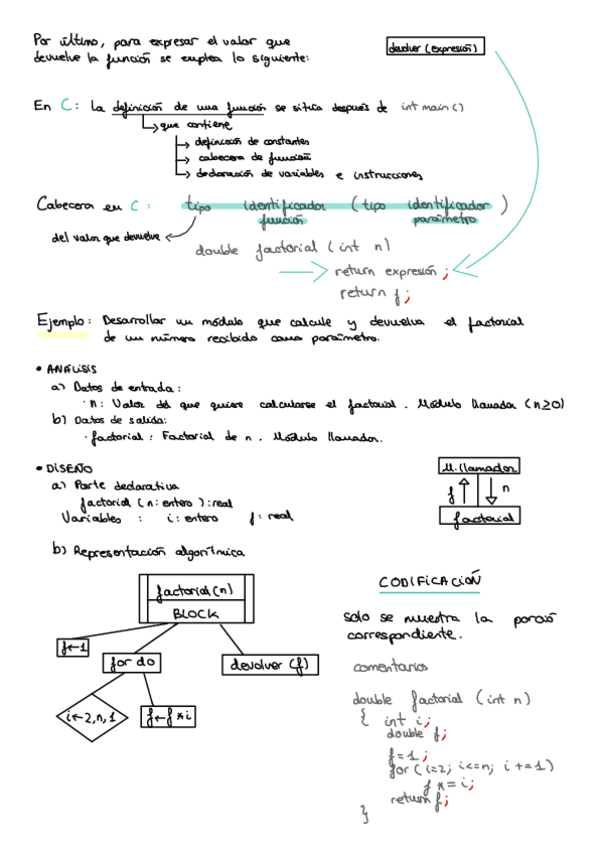 Por último, para expresar el valor que
devuelve la función se emplea lo siguiente:
devolver (expresión)
En C: La definición de una función se sitúa después de int main()
que contiene
definición de constantes
cabecera de función
declaración de variables e instrucciones
Cabecera en C: tipo identificador (tipo identificador)
función parámetro
del valor que devuelve
double factorial (int n)
return expresión ;
return f;
Ejemplo: Desarrollar un módulo que calcule y devuelva el factorial
de un número recibido como parámetro.
• ANÁLISIS
a) Datos de entrada:
· n: Valor del que quiere calcularse el factorial. Módulo llamador (n≥0)
b) Datos de salida:
· factorial: Factorial de n. Módulo llamador.
• DISEÑO
a) Parte declarativa
factorial (n: entero): real
Variables : i: entero f: real
M. llamador
f n
factorial
b) Representación algorítmica
factorial(n)
BLOCK
f←1
for do
devolver (f)
i←2,n,1
f←f*i
CODIFICACIÓN
Solo se muestra la porció
correspondiente.
comentarios
double factorial (int n)
{ int i;
double f;
f=1;
for (i=2; i<=n; i+=1)
f *= i;
return f;
}